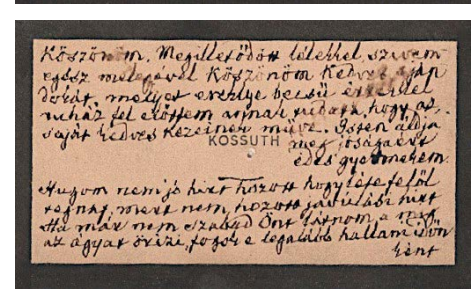 Köszönöm. Megilletődött lélekkel, szivem
egész melegével köszönöm kedves aján
dékát, melyet ereklye becsü értékkel
ruház fel előttem annak tudata, hogy az
saját kedves kezeinek műve. Isten áldja
KOSSUTH
meg jóságaért
édes gyermekem.
Hugom nem jó hirt hozott hogyléte felől
tegnap, mert nem hozott javulási hirt
Ha már nem szabad Önt látnom, a meg
az ágyat őrizi, fogok-e legalább hallani
felől